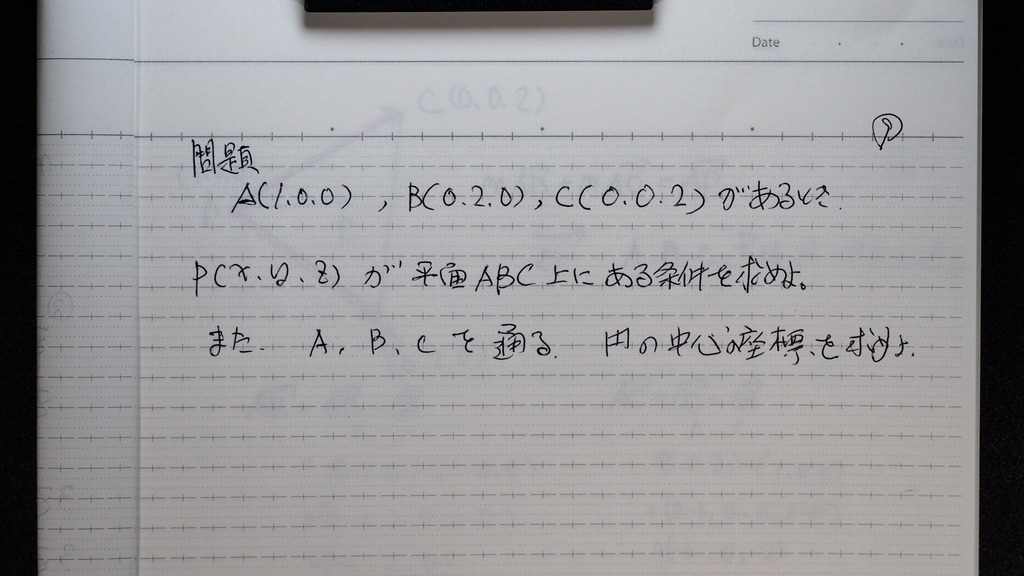 Date
問題
A(1.0.0), B(0.2.0), C(0.0.2)があるとき.
P(x.y.z)が平面ABC上にある条件を求めよ。
また. A, B, Cを通る. 円の中心座標を求めよ.